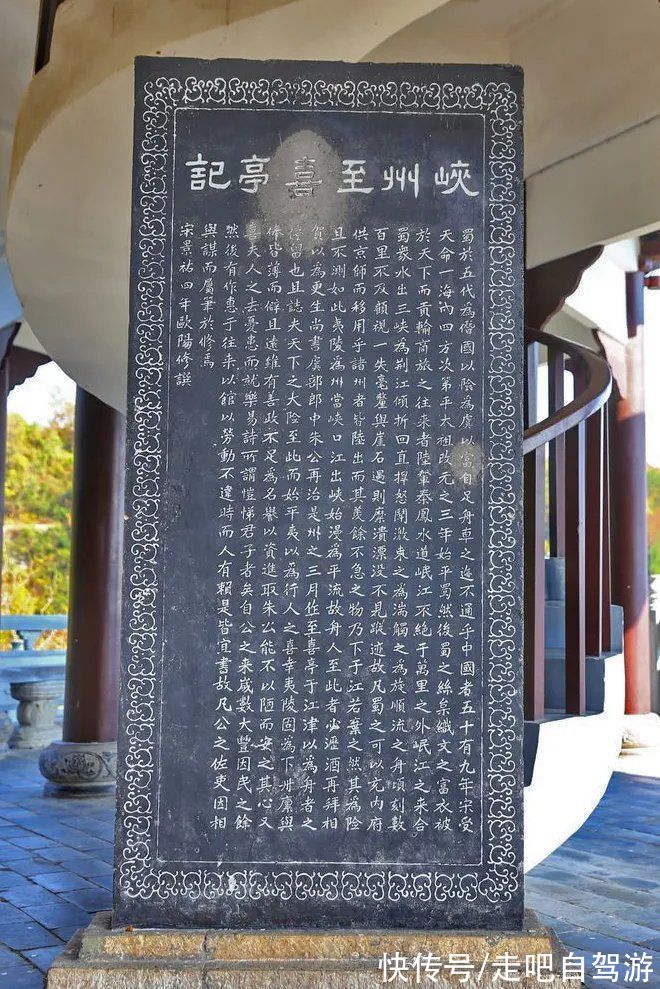 峽州至喜亭記
蜀於五代為僭國以險為虞以富自足舟車之迹不通乎中國者五十有九年宋受
天命一海內四方次第平太祖改元之三年始平蜀然後蜀之絲枲織文之富衣被
於天下而貢輸商旅之往來者陸輦秦鳳水道岷江不絕于萬里之外岷江之來合
蜀眾水出三峽為荊江傾折回直捍怒鬭激束之為湍觸之為旋順流之舟頃刻數
百里不及顧視一失毫釐與崖石遇則糜潰漂沒不見蹤迹故凡蜀之可以充內府
供京師而移用乎諸州者皆陸出而其羨餘不急之物乃下于江若棄之然其為險
且不測如此夷陵為州當峽口江出峽始漫為平流故舟人至此者必瀝酒再拜相
賀以為更生尚書虞部郎中朱公再治是州之三月作至喜亭于江津以為舟者之
停留也且誌夫天下之大險至此而始平夷以為行人之喜幸夷陵固為下州廩與
俸皆薄而僻且遠雖有善政不足為名譽以資進取朱公能不以陋而安之其心又
喜夫人之去憂患而就樂易詩所謂愷悌君子者矣自公之來歲數大豐因民之餘
然後有作惠于往來以館以勞動不違時而人有賴是皆宜書故凡公之佐吏因相
與謀而屬筆於修焉
宋景祐四年歐陽修撰
快传号/走吧自驾游